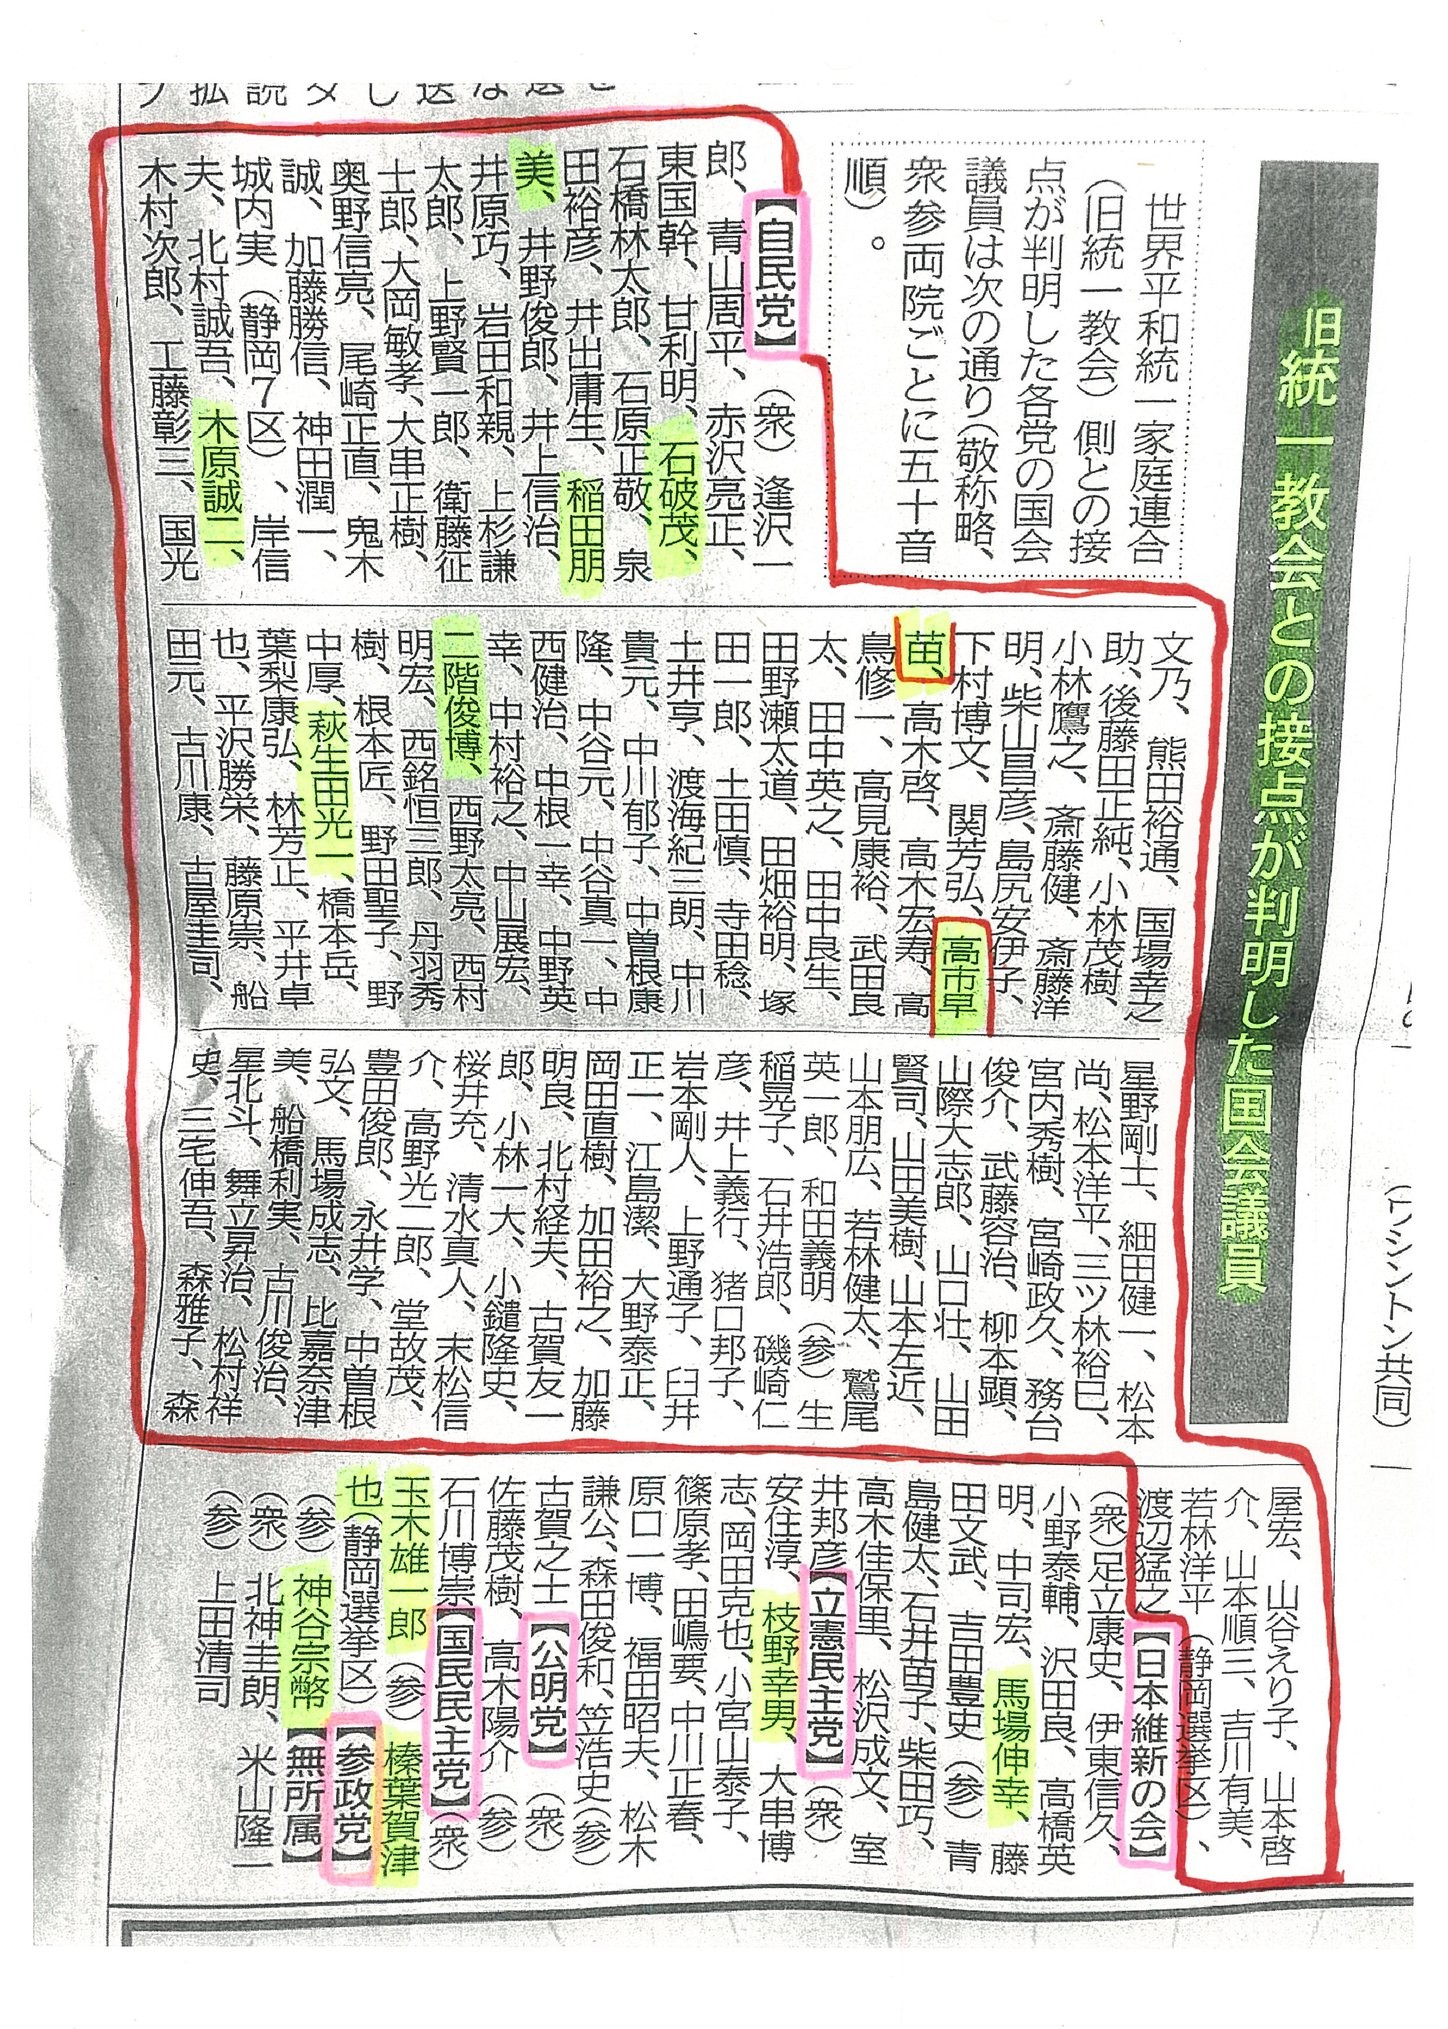 旧統一教会との接点が判明した国会議員
世界平和統一家庭連合
（旧統一教会）側との接
点が判明した各党の国会
議員は次の通り（敬称略、
衆参両院ごとに五十音
順）。
【自民党】（衆）逢沢一
郎、青山周平、赤沢亮正、
東国幹、甘利明、石破茂、
石橋林太郎、石原正敬、泉
田裕彦、井出庸生、稲田朋
美、井野俊郎、井上信治、
井原巧、岩田和親、上杉謙
太郎、上野賢一郎、衛藤征
士郎、大岡敏孝、大串正樹、
奥野信亮、尾崎正直、鬼木
誠、加藤勝信、神田潤一、
城内実（静岡７区）、岸信
夫、北村誠吾、木原誠二、
木村次郎、工藤彰三、国光
文乃、熊田裕通、国場幸之
助、後藤田正純、小林茂樹、
小林鷹之、斎藤健、斎藤洋
明、柴山昌彦、島尻安伊子、
下村博文、関芳弘、高市早
苗、高木啓、高木宏寿、高
鳥修一、高見康裕、武田良
太、田中英之、田中良生、
田野瀬太道、田畑裕明、塚
田一郎、土田慎、寺田稔、
土井亨、渡海紀三朗、中川
貴元、中川郁子、中曽根康
隆、中谷元、中谷真一、中
西健治、中根一幸、中野英
幸、中村裕之、中山展宏、
二階俊博、西野太亮、西村
明宏、西銘恒三郎、丹羽秀
樹、根本匠、野田聖子、野
中厚、萩生田光一、橋本岳、
葉梨康弘、林芳正、平井卓
也、平沢勝栄、藤原崇、船
田元、古川康、古屋圭司、
星野剛士、細田健一、松本
尚、松本洋平、三ツ林裕巳、
宮内秀樹、宮崎政久、務台
俊介、武藤容治、柳本顕、
山際大志郎、山口壮、山田
賢司、山田美樹、山本左近、
山本朋広、若林健太、鷲尾
英一郎、和田義明（参）生
稲晃子、石井浩郎、磯崎仁
彦、井上義行、猪口邦子、
岩本剛人、上野通子、臼井
正一、江島潔、大野泰正、
岡田直樹、加田裕之、加藤
明良、北村経夫、古賀友一
郎、小林一大、小鑓隆史、
桜井充、清水真人、末松信
介、高野光二郎、堂故茂、
豊田俊郎、永井学、中曽根
弘文、馬場成志、比嘉奈津
美、船橋利実、古川俊治、
星北斗、舞立昇治、松村祥
史、三宅伸吾、森雅子、森
屋宏、山谷えり子、山本啓
介、山本順三、吉川有美、
若林洋平（静岡選挙区）、
渡辺猛之【日本維新の会】
（衆）足立康史、伊東信久、
小野泰輔、沢田良、高橋英
明、中司宏、馬場伸幸、藤
田文武、吉田豊史（参）青
島健太、石井苗子、柴田巧、
高木佳保里、松沢成文、室
井邦彦【立憲民主党】（衆）
安住淳、枝野幸男、大串博
志、岡田克也、小宮山泰子、
篠原孝、田嶋要、中川正春、
原口一博、福田昭夫、松木
謙公、森田俊和、笠浩史（参）
古賀之士【公明党】（衆）
佐藤茂樹、高木陽介（参）
石川博崇【国民民主党】（衆）
玉木雄一郎（参）榛葉賀津
也（静岡選挙区）【参政党】
（参）神谷宗幣【無所属】
（衆）北神圭朗、米山隆一
（参）上田清司
（ワシントン共同）